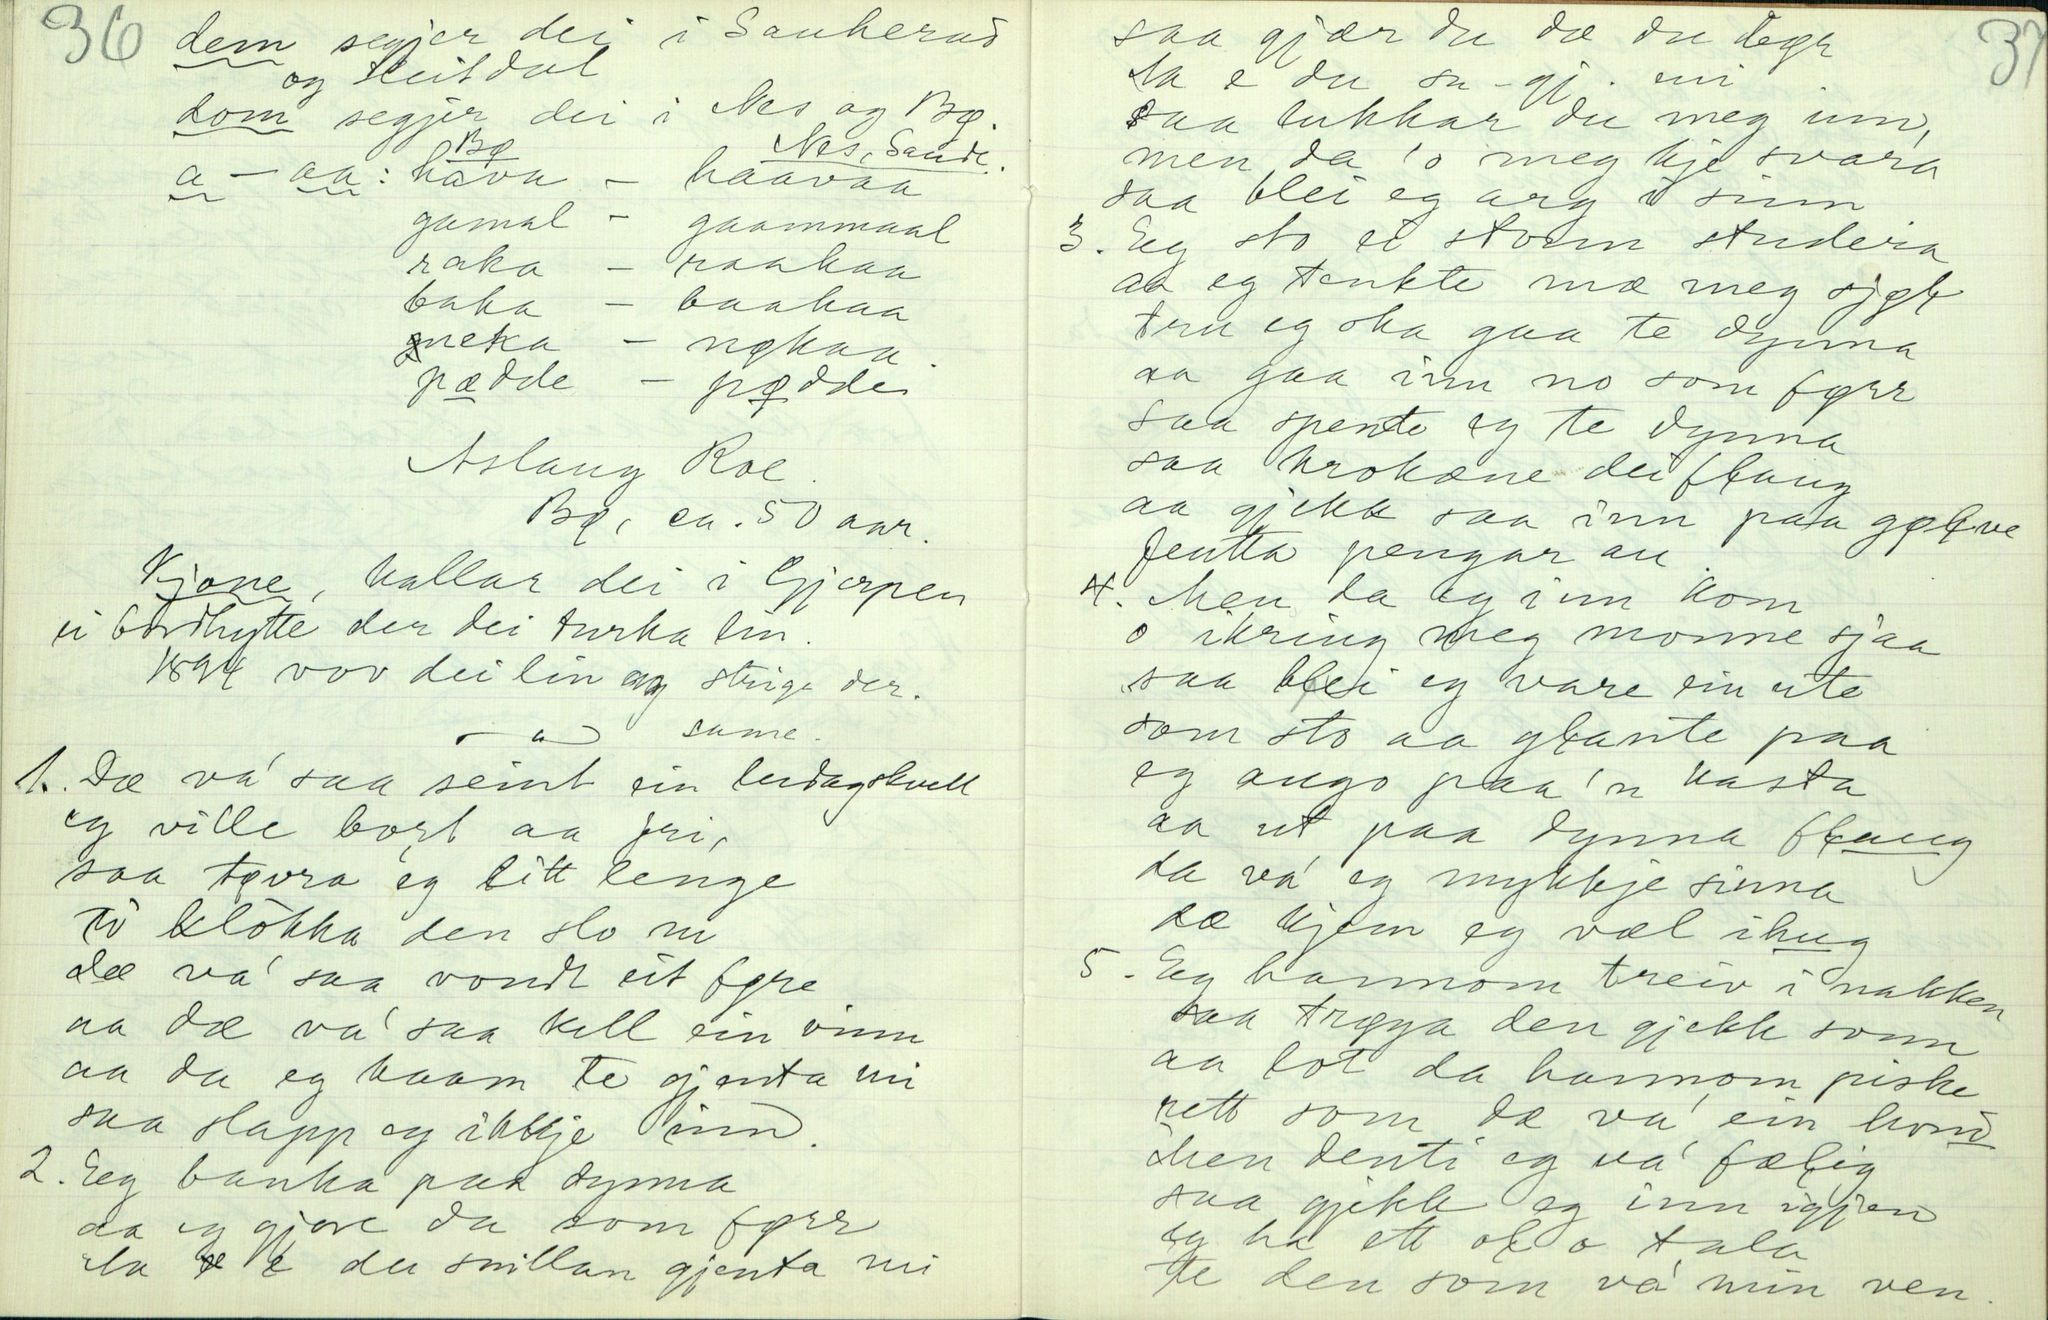 36
dem segjer dei i Sauherad
og Heitdal
dom segjer dei i Nes og Bø.
Bø Nes, Saude.
a – aa: hava – haavaa
gamal – gaammaal
raka – raakaa
baka – baakaa
neka – nøkaa
pædde – pødde
Aslaug Roe.
Bø, ca. 50 aar.
Kjone, kallar dei i Gjerpen
ei bordhytte der dei turka lin.
1894 vov dei lin og strige der.
same.
1. Dæ va' saa seint ein laudagskvell
eg ville bort aa fri,
saa tøvra eg litt lenge
te klokka den slo ni
dæ va' saa vondt eit føre
aa dæ va' saa kall ein vinn
aa da eg kaam te gjenta mi
saa slapp eg ikkje inn.
2. Eg banka paa dynna
aa eg gjore da som førr
Aa e du snillan gjenta mi
37
saa gjær du dæ du bør
Aa e du sn - gj. mi
saa lukkar du meg inn,
men da 'o meg kje svara
saa blei eg arg i sinn
3. Eg sto ei stonn studera
aa eg tenkte mæ meg sjøl
tru eg ska gaa te dynna
aa gaa inn no som førr
saa spente eg te dynna
saa krokæne dei flaug
aa gjekk saa inn paa gølve
jentta pengar au.
4. Men da eg inn kom
o ikring meg monne sjaa
saa blei eg vare ein ute
som sto aa glante paa
eg augo paa'n kasta
aa ut paa dynna flaug
da va' eg mykkje sinna
dæ kjem eg væl ihug
5. Eg hannom treiv i nakken
saa trøya den gjekk sonn
aa lot da hannom piske
rett som dæ va' ein hond
Men denti eg va' fælig
saa gjekk eg inn igjen
eg ha ett ol o tala
te den som va' min ven.